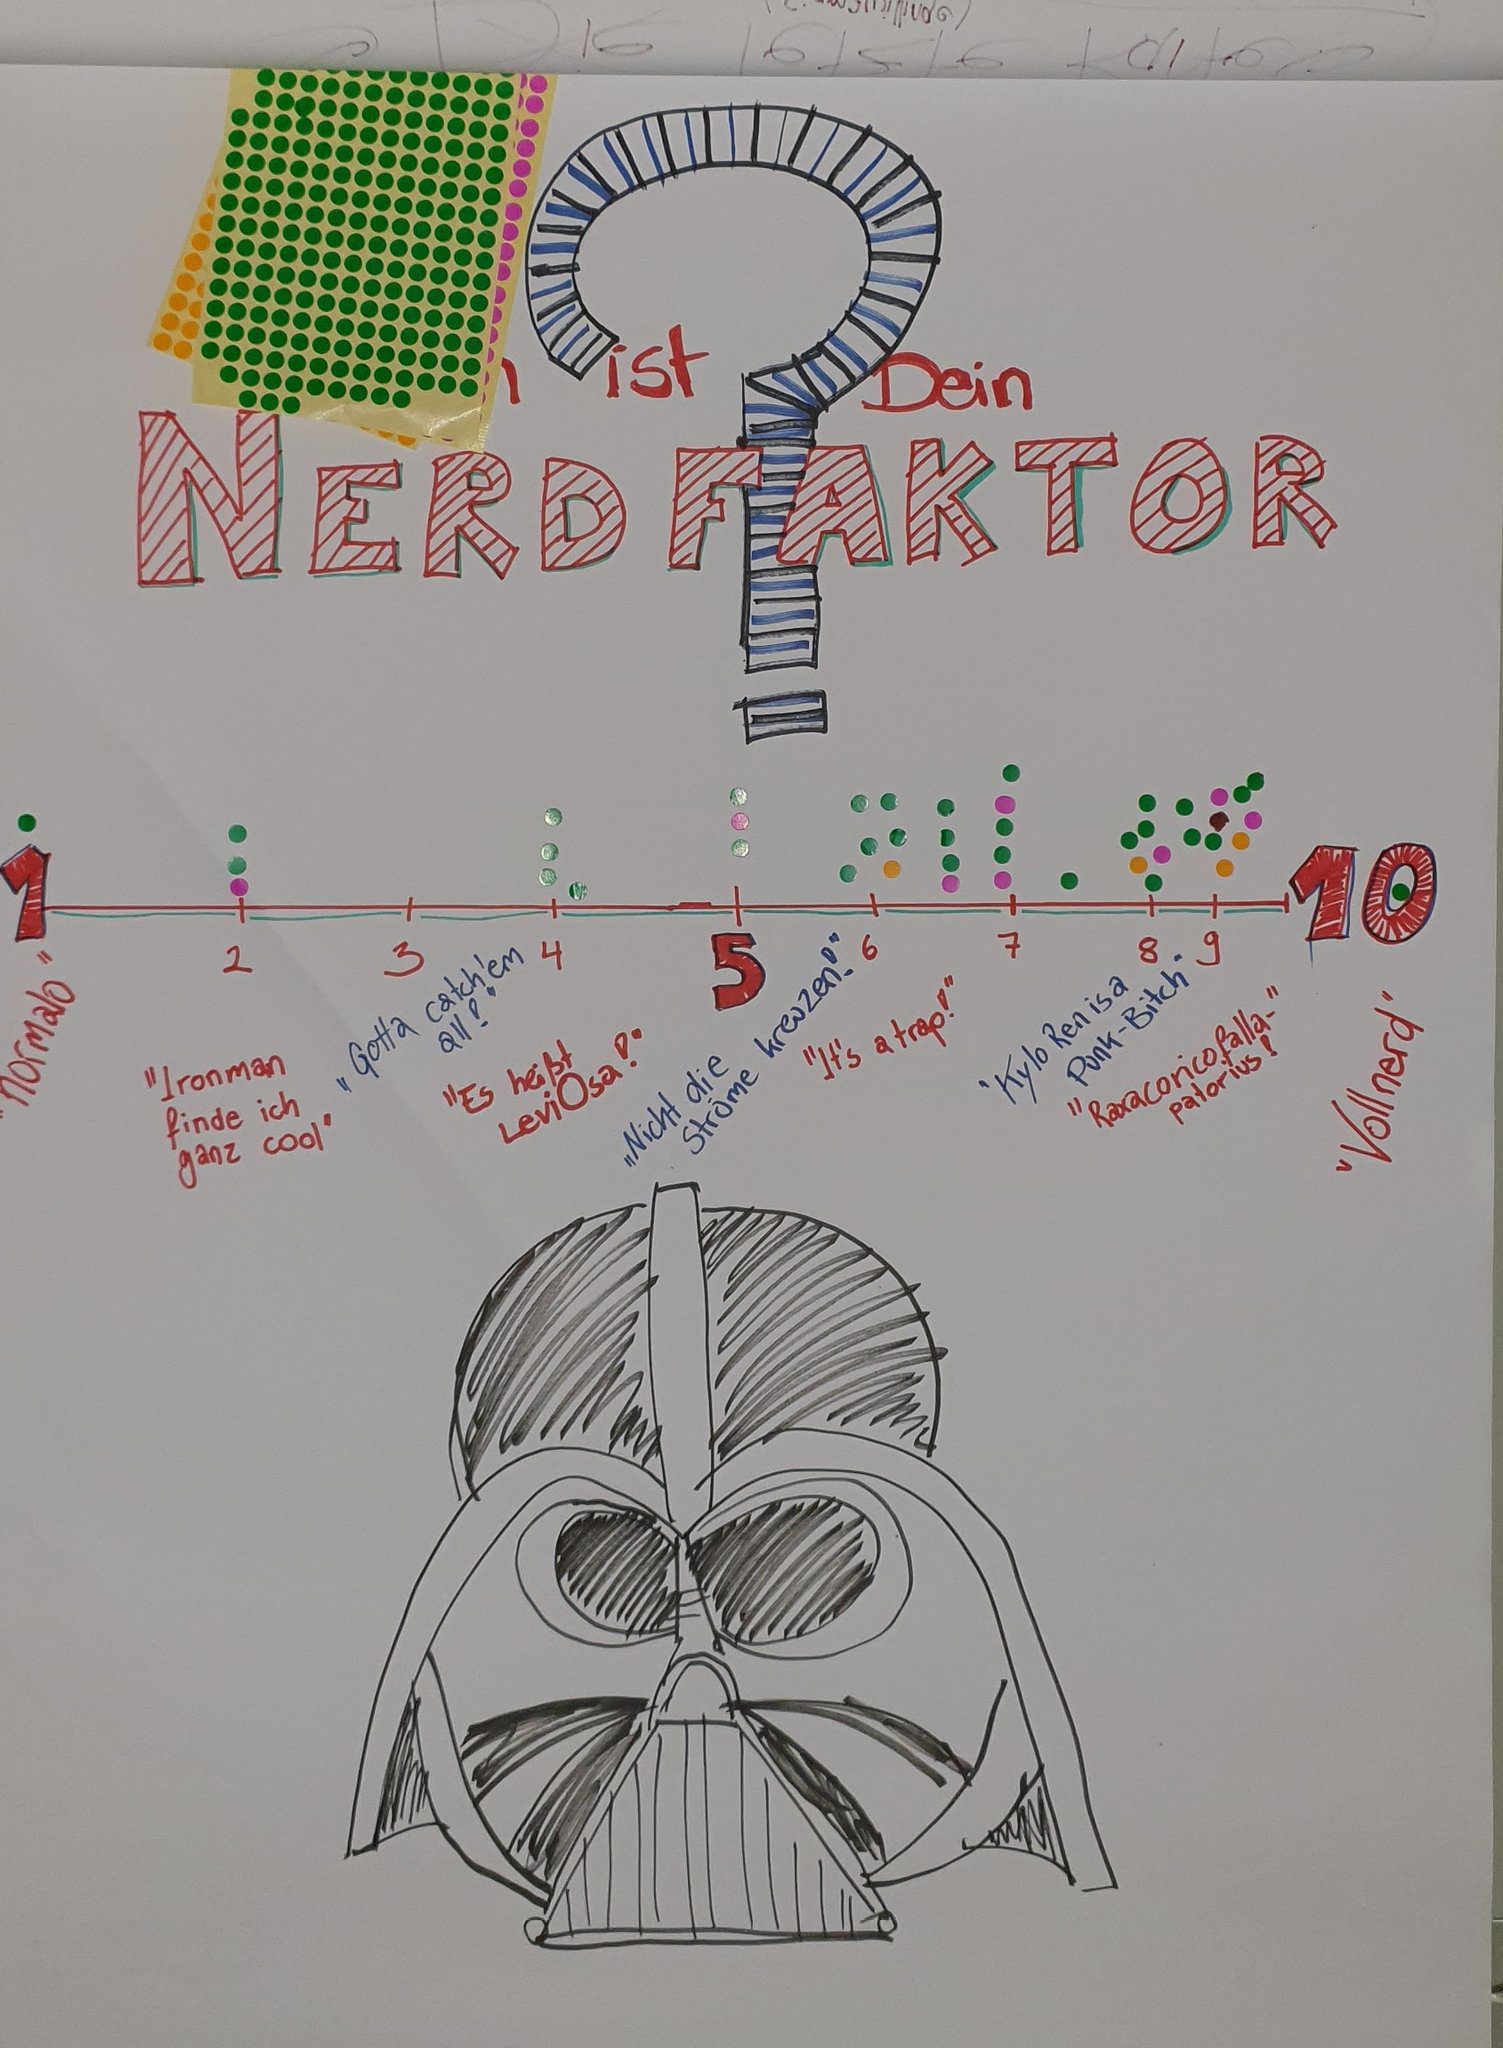 ist Dein
NERDFAKTOR
?
1
2
3
4
5
6
7
8
9
10
"Normalo"
"Ironman
finde ich
ganz cool"
"Gotta catch'em
all!"
"Es heißt
LeviOsa!"
"Nicht die
Ströme kreuzen!"
"It's a trap!"
"Kylo Ren is a
Punk-Bitch"
"Raxacoricofalla-
patorius!"
"Vollnerd"